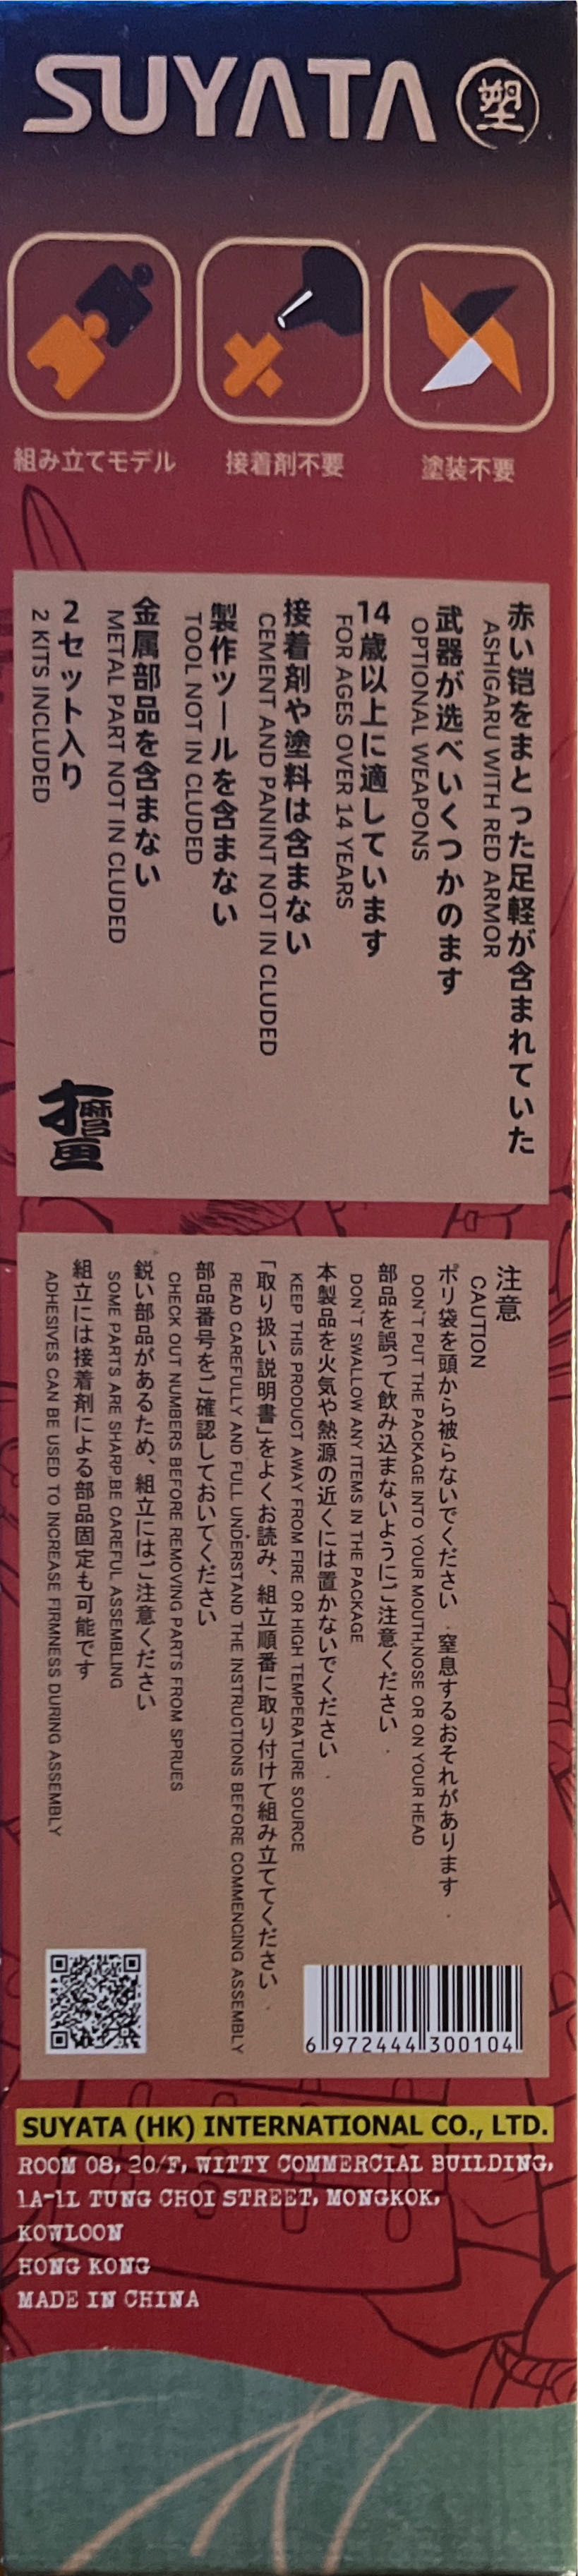 SUYATA 塑
組み立てモデル
接着剤不要
塗装不要
赤い铠をまとった足軽が含まれていた
ASHIGARU WITH RED ARMOR
武器が选べいくつかのます
OPTIONAL WEAPONS
14歳以上に適しています
FOR AGES OVER 14 YEARS
接着剤や塗料は含まない
CEMENT AND PANINT NOT IN CLUDED
製作ツールを含まない
TOOL NOT IN CLUDED
金属部品を含まない
METAL PART NOT IN CLUDED
2セット入り
2 KITS INCLUDED
注意
CAUTION
ポリ袋を頭から被らないでください．窒息するおそれがあります．
DON'T PUT THE PACKAGE INTO YOUR MOUTH,NOSE OR ON YOUR HEAD
部品を誤って飲み込まないようにご注意ください．
DON'T SWALLOW ANY ITEMS IN THE PACKAGE
本製品を火気や熱源の近くには置かないでください．
KEEP THIS PRODUCT AWAY FROM FIRE OR HIGH TEMPERATURE SOURCE
「取り扱い説明書」をよくお読み、組立順番に取り付けて組み立ててください．
READ CAREFULLY AND FULL UNDERSTAND THE INSTRUCTIONS BEFORE COMMENCING ASSEMBLY
部品番号をご確認しておいてください
CHECK OUT NUMBERS BEFORE REMOVING PARTS FROM SPRUES
鋭い部品があるため、組立にはご注意ください
SOME PARTS ARE SHARP,BE CAREFUL ASSEMBLING
組立には接着剤による部品固定も可能です
ADHESIVES CAN BE USED TO INCREASE FIRMNESS DURING ASSEMBLY
6 972444 300104
SUYATA (HK) INTERNATIONAL CO., LTD.
ROOM 08, 20/F, WITTY COMMERCIAL BUILDING,
1A-1L TUNG CHOI STREET, MONGKOK,
KOWLOON
HONG KONG
MADE IN CHINA